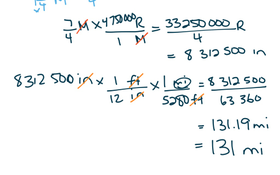 7 M/4 × 4750000 R/1 M = 33250000 R/4
= 8 312 500 in
8312 500 in × 1 ft/12 in × 1 mi/5280 ft = 8 312 500/63 360
= 131.19 mi
= 131 mi